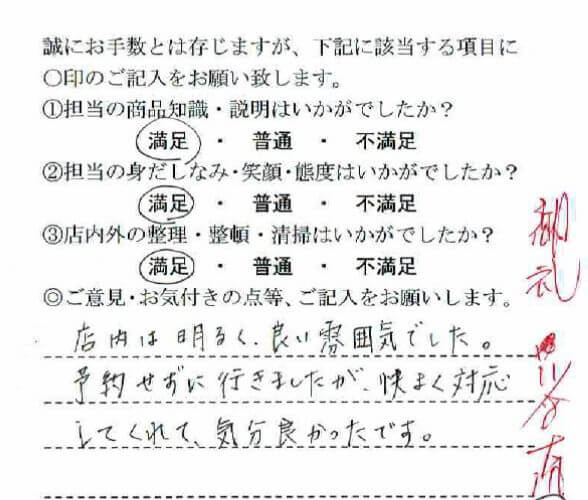 誠にお手数とは存じますが、下記に該当する項目に
〇印のご記入をお願い致します。
①担当の商品知識・説明はいかがでしたか？
満足 ・ 普通 ・ 不満足
②担当の身だしなみ・笑顔・態度はいかがでしたか？
満足 ・ 普通 ・ 不満足
③店内外の整理・整頓・清掃はいかがでしたか？
満足 ・ 普通 ・ 不満足
◎ご意見・お気付きの点等、ご記入をお願いします。
店内は明るく、良い雰囲気でした。
予約せずに行きましたが、快よく対応
してくれて、気分良かったです。
御礼